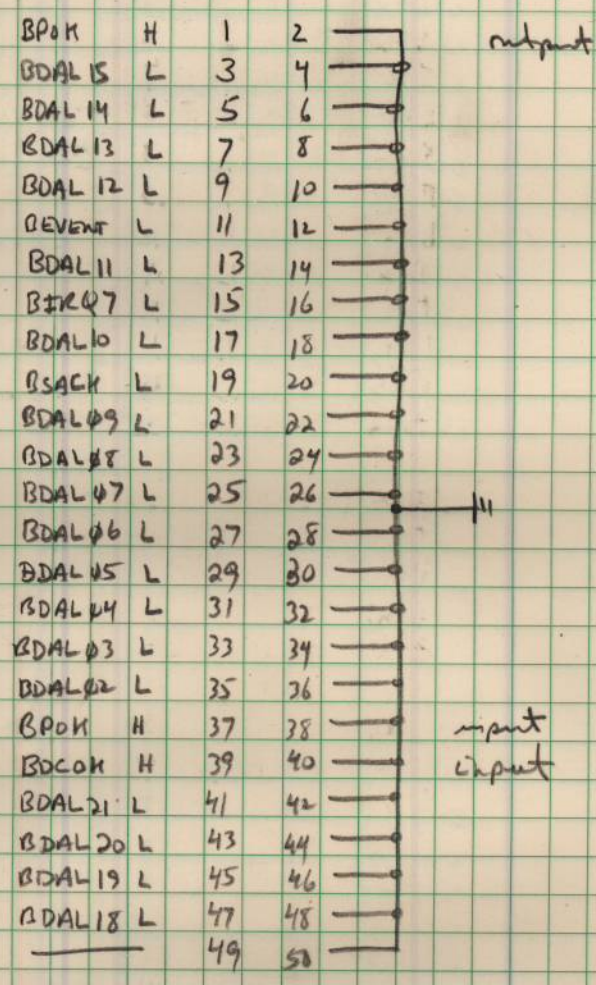 BPOK H 1 2 output
BDAL 15 L 3 4
BDAL 14 L 5 6
BDAL 13 L 7 8
BDAL 12 L 9 10
BEVENT L 11 12
BDAL 11 L 13 14
BIRQ7 L 15 16
BDAL 10 L 17 18
BSACK L 19 20
BDAL 09 L 21 22
BDAL 08 L 23 24
BDAL 07 L 25 26
BDAL 06 L 27 28
BDAL 05 L 29 30
BDAL 04 L 31 32
BDAL 03 L 33 34
BDAL 02 L 35 36
BPOK H 37 38 input
BDCOK H 39 40 input
BDAL 21 L 41 42
BDAL 20 L 43 44
BDAL 19 L 45 46
BDAL 18 L 47 48
49 50